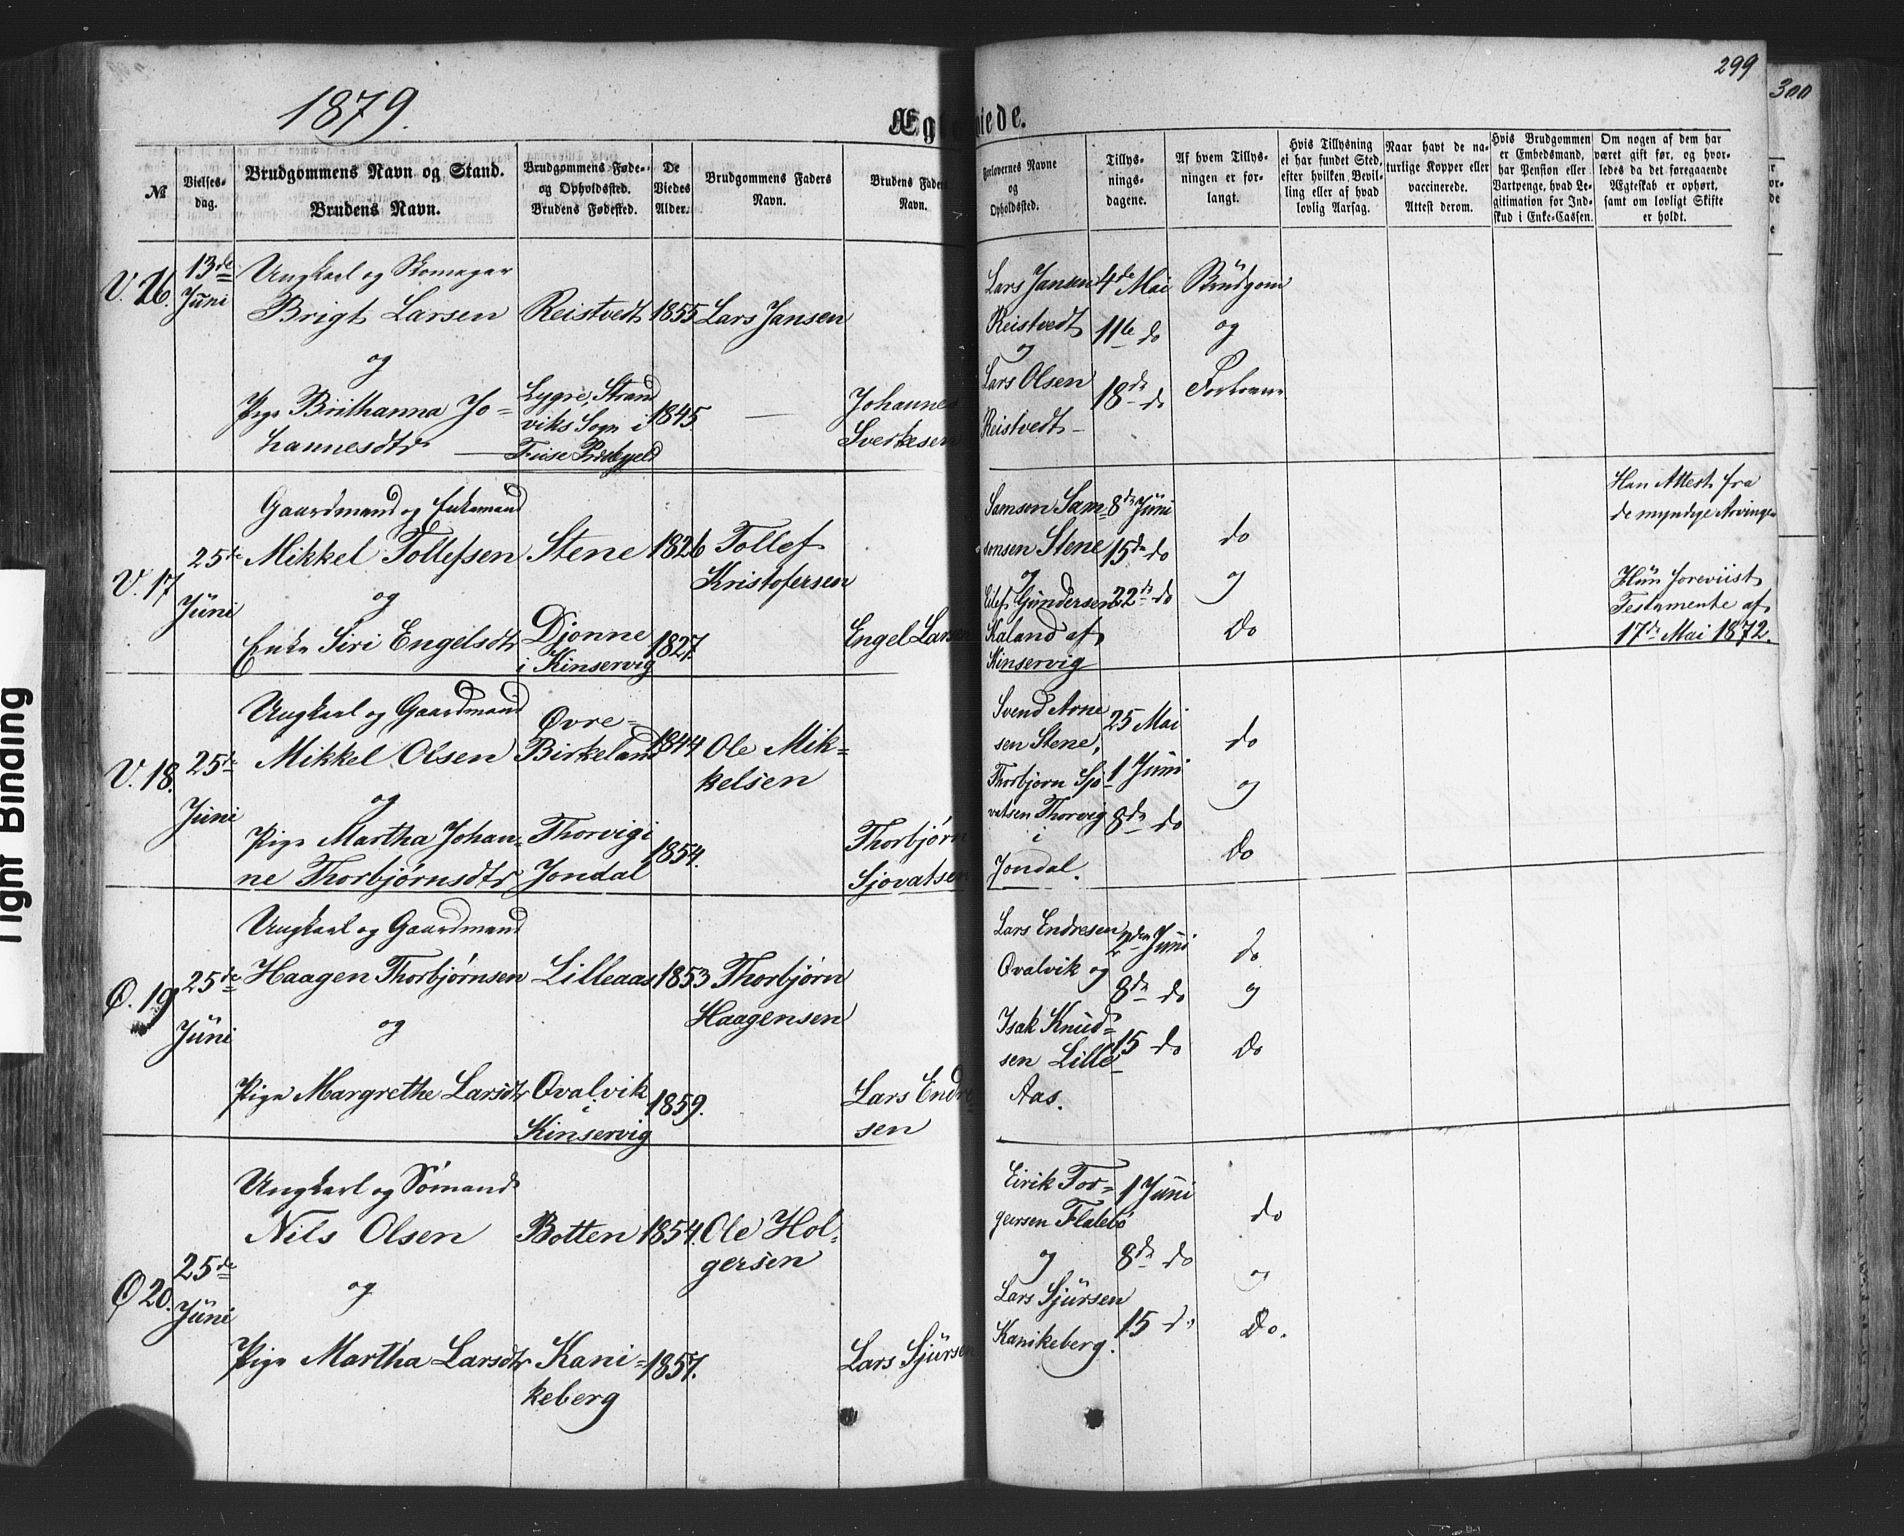 299
300
1879.
Ægteviede.
№
Vielses-
dag.
Brudgommens Navn og Stand.
Brudens Navn.
Brudgommens Føde-
og Opholdssted.
Brudens Fødested.
De
Viedes
Alder.
Brudgommens Faders
Navn.
Brudens Faders
Navn.
Forlovernes Navne
og
Opholdssted.
Tillys-
nings-
dagene.
Af hvem Tillys-
ningen er for-
langt.
Hvis Tillysning
ei har fundet Sted,
efter hvilken Bevil-
ling eller af hvad
lovlig Aarsag.
Naar havt de na-
turlige Kopper eller
vaccinerede.
Attest derom.
Hvis Brudgommen
er Embedsmand,
har Pension eller
Vartpenge, hvad Le-
gitimation for Ind-
skud i Enke-Cassen.
Om nogen af dem har
været gift før, og hvor-
ledes da det foregaaende
Ægteskab er ophørt,
samt om lovligt Skifte
er holdt.
V. 16.
13de
Juni
Ungkarl og Skomager
Brigt Larsen
og
Pige Brithanna Jo-
hannesdtr
Reistvedt
Lygre, Strand
viks Sogn i
Fuse Præstegjeld
1855
1845
Lars Jansen
Johannes
Sverkesen
Lars Jansen
Reistvedt
og
Lars Olsen
Reistvedt
4de Mai
11te do
18de do
Brudgom
og
Forlover
V. 17
25de
Juni
Gaardmand og Enkemand
Mikkel Tollefsen
og
Enke Siri Engelsdtr
Stene
Djønne
i Kinservig
1826
1827.
Tollef
Kristofersen
Engel Larsen
Samson Sam-
sonsen Stene
og
Eilef Gundersen
Kaland af
Kinservig
8de Juni
15de do
22de do
do
og
do
Han Attest fra
de myndige Arvinger
Hun foreviist
Testamente af
17de Mai 1872.
V. 18.
25de
Juni
Ungkarl og Gaardmand
Mikkel Olsen
og
Pige Martha Johan-
ne Thorbjørnsdtr
Øvre-
Birkeland
Thorvig i
Jondal
1844
1854.
Ole Mik-
kelsen
Thorbjørn
Sjovatsen
Svend Arne
sen Stene,
Thorbjørn Sjo-
vatsen Thorvig
i
Jondal.
25 Mai
1 Juni
8de do
do
og
do
Ø. 19
25de
Juni
Ungkarl og Gaardmand
Haagen Thorbjørnsen
og
Pige Margrethe Larsdtr
Lilleaas
Qvalvik
i
Kinservig
1853
1859.
Thorbjørn
Haagensen
Lars Endre-
sen
Lars Endresen
Qvalvik og
Isak Knud-
sen Lille
Aas.
2den Juni
8de do
15 do
do
og
do
Ø 20.
25de
Juni
Ungkarl og Sømand
Nils Olsen
og
Pige Martha Larsdtr
Botten
Kani-
keberg
1854.
1857.
Ole Hol-
gersen
Lars Sjursen
Eirik Tor-
geirsen Flatebø
og
Lars Sjursen
Kanikeberg.
1 Juni
8de do
15 do
do
og
do.
Tight Binding